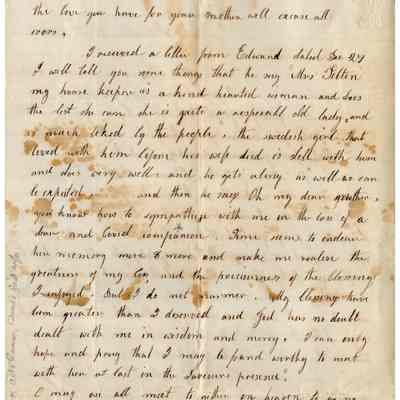 the love you have for your mother will excuse all
I received a letter from Edward dated Dec 24
I will tell you some things that he say Mrs Tilton
my house keeper is a kind hearted woman and does
the best she can she is quite a respectable old lady, and
is much liked by the people, the swedish girl that
lived with him before his wife died is still with him
and does very well and he gets along as well as can
be expected. and then he says Oh my dear
you know how to sympathise with me in the loss of a
dear and loved companion. Time seems to endear
her memory more & more and make me realize the
greatness of my loss, and the preciousness of the blessing
I enjoyed. But I do not murmur. My blessings have
been greater than I deserved and God has no doubt
dealt with me in wisdom and mercy. I can only
hope and pray that I may be found worthy to meet
with her at last in the Saviours presence.
O may we all meet in heaven